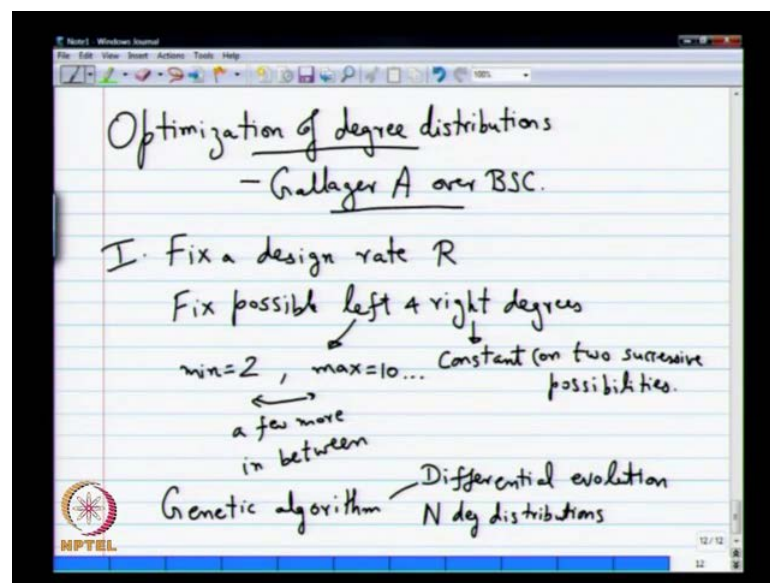 Note1 - Windows Journal
File Edit View Insert Actions Tools Help
100%
Optimization of degree distributions
- Gallager A over BSC.
I. Fix a design rate R
Fix possible left & right degrees
min=2 , max=10... Constant (on two successive possibilities.
a few more in between
Genetic algorithm Differential evolution
N deg distributions
NPTEL
12/12
12